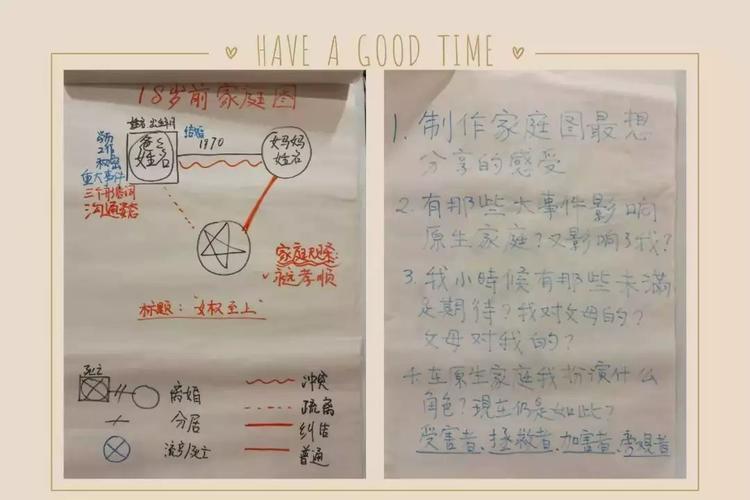 HAVE A GOOD TIME
18岁前家庭图
姓名 出生年月
爸爸
姓名
结婚
1970
妈妈
姓名
学历
工作
秘密
重大事件
三个形容词
沟通姿态
家庭规条:
永远孝顺
标题:"女权至上"
死亡
离婚
分居
流产/死亡
冲突
疏离
纠结
普通
1. 制作家庭图最想
分享的感受
2. 有那些大事件影响
原生家庭?又影响了我?
3. 我小時候有那些未滿
足期待?我对父母的?
父母对我的?
4. 在原生家庭我扮演什么
角色?現在仍是如此?
受害者、拯救者、加害者、旁观者